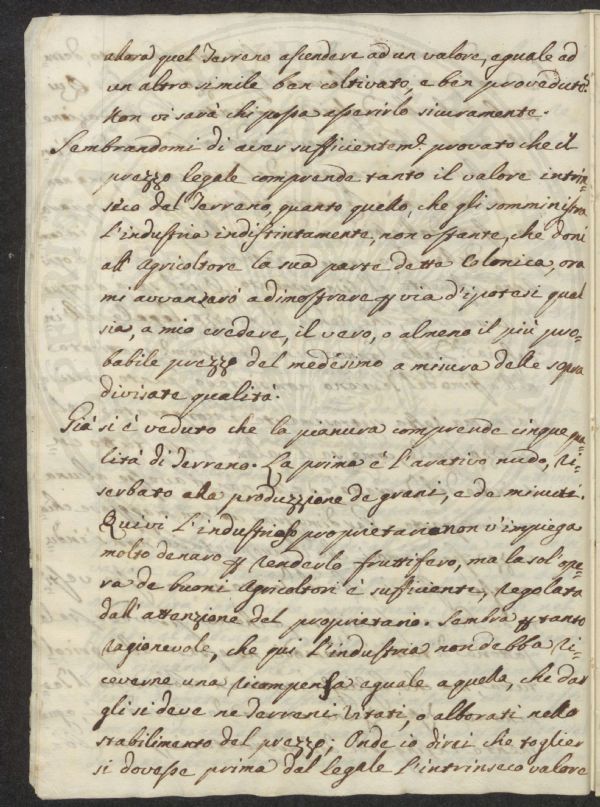 allora quel Terreno ascendere ad un valore, eguale ad
un altro simile ben coltivato, e ben proveduto?
Non vi sarà chi possa asserirlo sicuramente.
Sembrandomi di aver sufficientem.e provato che il
prezzo legale comprende tanto il valore intrin=
seco del Terreno, quanto quello, che gli somministra
l'industria indistintamente, non ostante, che doni
all'Agricoltore la sua parte detta Colonica, ora
mi avvanzarò a dimostrare per via d'ipotesi qual
sia, a mio credere, il vero, o almeno il più pro=
babile prezzo del medesimo a misura delle sopra
divisate qualità.
Già si è veduto che la pianura comprende cinque qua=
lità di Terreno. La prima è l'arativo nudo, ri=
serbato alla produzzione de grani, e de minuti.
Quivi l'industrioso proprietario non v'impiega
molto denaro per renderlo fruttifero, ma la sol'ope=
ra de buoni Agricoltori è sufficiente, regolata
dall'attenzione del proprietario. Sembra per tanto
ragionevole, che qui l'industria non debba ri=
ceverne una ricompensa eguale a quella, che dar
gli si deve ne Terreni vitati, o alborati nello
stabilimento del prezzo; Onde io direi che toglier
si dovesse prima dal legale l'intrinseco valore